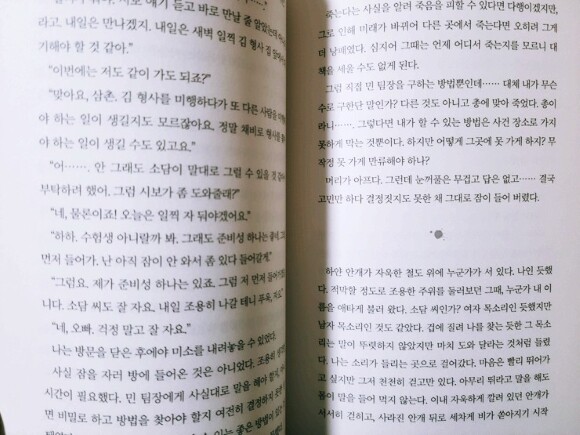 그러게. 저도 얘기 듣고 바로 만날 줄 알았는데
라고. 내일은 만나겠지. 내일은 새벽 일찍 김 형사 집 앞에서
기해야 할 것 같아."
"이번에는 저도 같이 가도 되죠?"
"맞아요, 삼촌. 김 형사를 미행하다가 또 다른 사람을 미행
야 하는 일이 생길지도 모르잖아요. 정말 채비로 형사를
야 하는 일이 생길 수도 있고요."
"어……. 안 그래도 소담이 말대로 그럴 수 있을 것 같아
부탁하려 했어. 그럼 시보가 좀 도와줄래?"
"네, 물론이죠! 오늘은 일찍 자 둬야겠어요."
"하하. 수험생 아니랄까 봐. 그래도 준비성 하나는
먼저 들어가. 난 아직 잠이 안 와서 좀 있다 들어갈게."
"그럼요. 제가 준비성 하나는 있죠. 그럼 저 먼저 들어
니다. 소담 씨도 잘 자요. 내일 조용히 나갈 테니 푹
"네, 오빠. 걱정 말고 잘 자요."
나는 방문을 닫은 후에야 미소를 내려놓을 수 있었다.
사실 잠을 자러 방에 들어온 것은 아니었다. 조용히
시간이 필요했다. 민 팀장에게 사실대로 말을 해야 할지,
면 비밀로 하고 방법을 찾아야 할지 여전히 결정하지 못
있는 좋은 방법이
죽는다는 사실을 알려 죽음을 피할 수 있다면 다행이겠지만,
그로 인해 미래가 바뀌어 다른 곳에서 죽는다면 오히려 그게
더 낭패였다. 심지어 그때는 언제 어디서 죽는지를 모르니 대
책을 세울 수도 없게 된다.
그럼 직접 민 팀장을 구하는 방법뿐인데…… 대체 내가 무슨
수로 구한단 말인가? 다른 것도 아니고 총에 맞아 죽었다. 총이
라니……. 그렇다면 내가 할 수 있는 방법은 사건 장소로 가지
못하게 막는 것뿐이다. 하지만 어떻게 그곳에 못 가게 하지? 무
작정 못 가게 만류해야 하나?
머리가 아프다. 그런데 눈꺼풀은 무겁고 답은 없고…… 결국
고민만 하다 결정짓지도 못한 채 그대로 잠이 들어 버렸다.
하얀 안개가 자욱한 철도 위에 누군가가 서 있다. 나인 듯했
다. 적막할 정도로 조용한 주위를 둘러보던 그때, 누군가 내 이
름을 애타게 불러 왔다. 소담 씨인가? 여자 목소리인 듯했지만
남자 목소리인 것도 같았다. 겁에 질려 나를 찾는 듯한 그 목소
리는 말이 뚜렷하지 않았지만 마치 도와 달라는 것처럼 들렸
다. 나는 소리가 들리는 곳으로 걸어갔다. 마음은 빨리 뛰어가
고 싶지만 그저 천천히 걷고만 있다. 아무리 뛰라고 말을 해도
몸이 말을 듣지 않았다. 이내 자욱하게 깔려 있던 안개가
서서히 걷히고, 사라진 안개 뒤로 세차게 비가 쏟아지기 시작